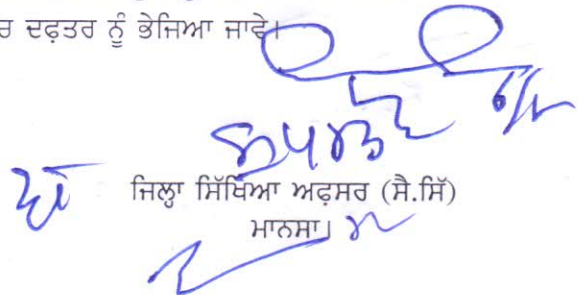 ਰ ਦਫ਼ਤਰ ਨੂੰ ਭੇਜਿਆ ਜਾਵੇ।
ਜਿਲ੍ਹਾ ਸਿੱਖਿਆ ਅਫ਼ਸਰ (ਸੈ.ਸਿੱ)
ਮਾਨਸਾ।